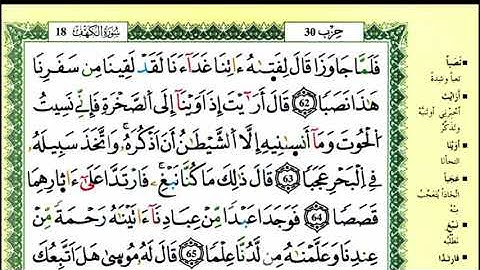 حِزْب 30
سُورَةُ الكَهْف 18
فَلَمَّا جَاوَزَا قَالَ لِفَتَىٰهُ ءَاتِنَا غَدَآءَنَا لَقَدْ لَقِينَا مِن سَفَرِنَا
هَٰذَا نَصَبًا 62 قَالَ أَرَٰيْتَ إِذَ اوَيْنَا إِلَى الصَّخْرَةِ فَإِنِّي نَسِيتُ
الْحُوتَ وَمَا أَنسَىٰنِيهِ إِلَّا الشَّيْطَٰنُ أَنَ اذْكُرَهُ وَاتَّخَذَ سَبِيلَهُ
فِي الْبَحْرِ عَجَبًا 63 قَالَ ذَٰلِكَ مَا كُنَّا نَبْغِ فَارْتَدَّا عَلَىٰ ءَاثَارِهِمَا
قَصَصًا 64 فَوَجَدَا عَبْدًا مِّنْ عِبَادِنَا ءَاتَيْنَٰهُ رَحْمَةً مِّنْ
عِندِنَا وَعَلَّمْنَٰهُ مِن لَّدُنَّا عِلْمًا 65 قَالَ لَهُ مُوسَىٰ هَلَ اتَّبِعُكَ
نَصَبًا
تعباً وشدة
أَرَٰيْتَ
أخبرني أو تنبه
وتذكر
أَوَيْنَا
التجأنا
عَجَبًا
اتخاذاً يتعجب
منه
نَبْغِ
نطلبه
فَارْتَدَّا